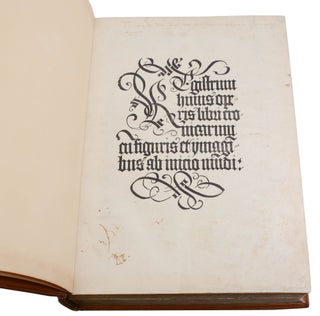 Registrum
huius ope
ris libri cro
nicarum
cũ figuris et ymagĩ
bus ab inicio mũdi: